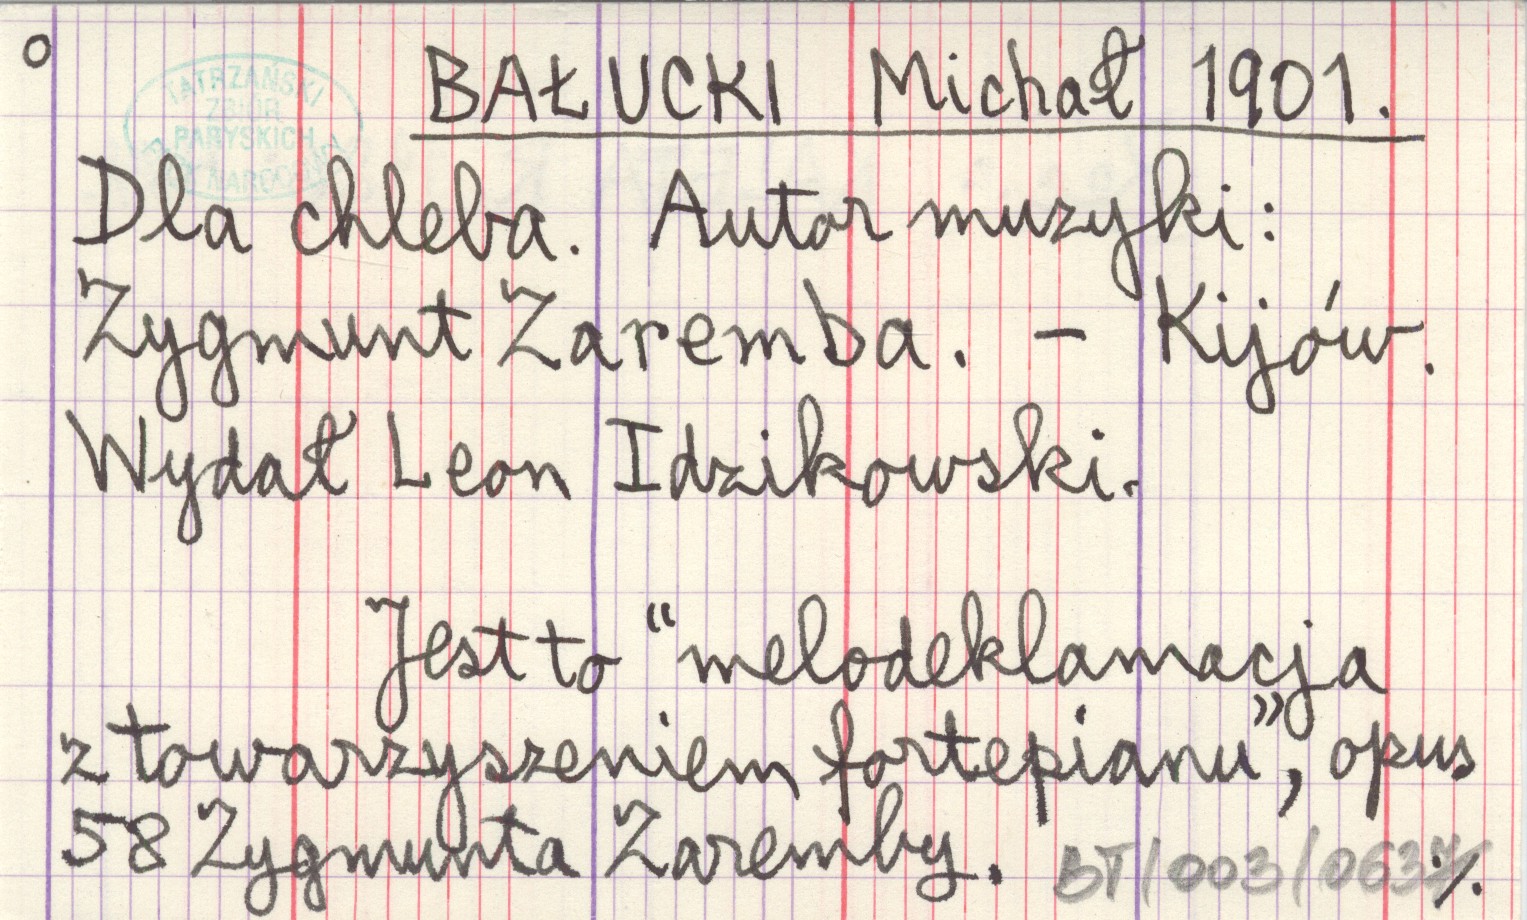 o
BAŁUCKI Michał 1901.
TATRZAŃSKI
ZBIÓR
PARYSKICH
DAR NARODOWI
Dla chleba. Autor muzyki:
Zygmunt Zaremba. – Kijów.
Wydał Leon Idzikowski.
Jest to “melodeklamacja
z towarzyszeniem fortepianu”, opus
58 Zygmunta Zaremby.
BT/003/0637
./.